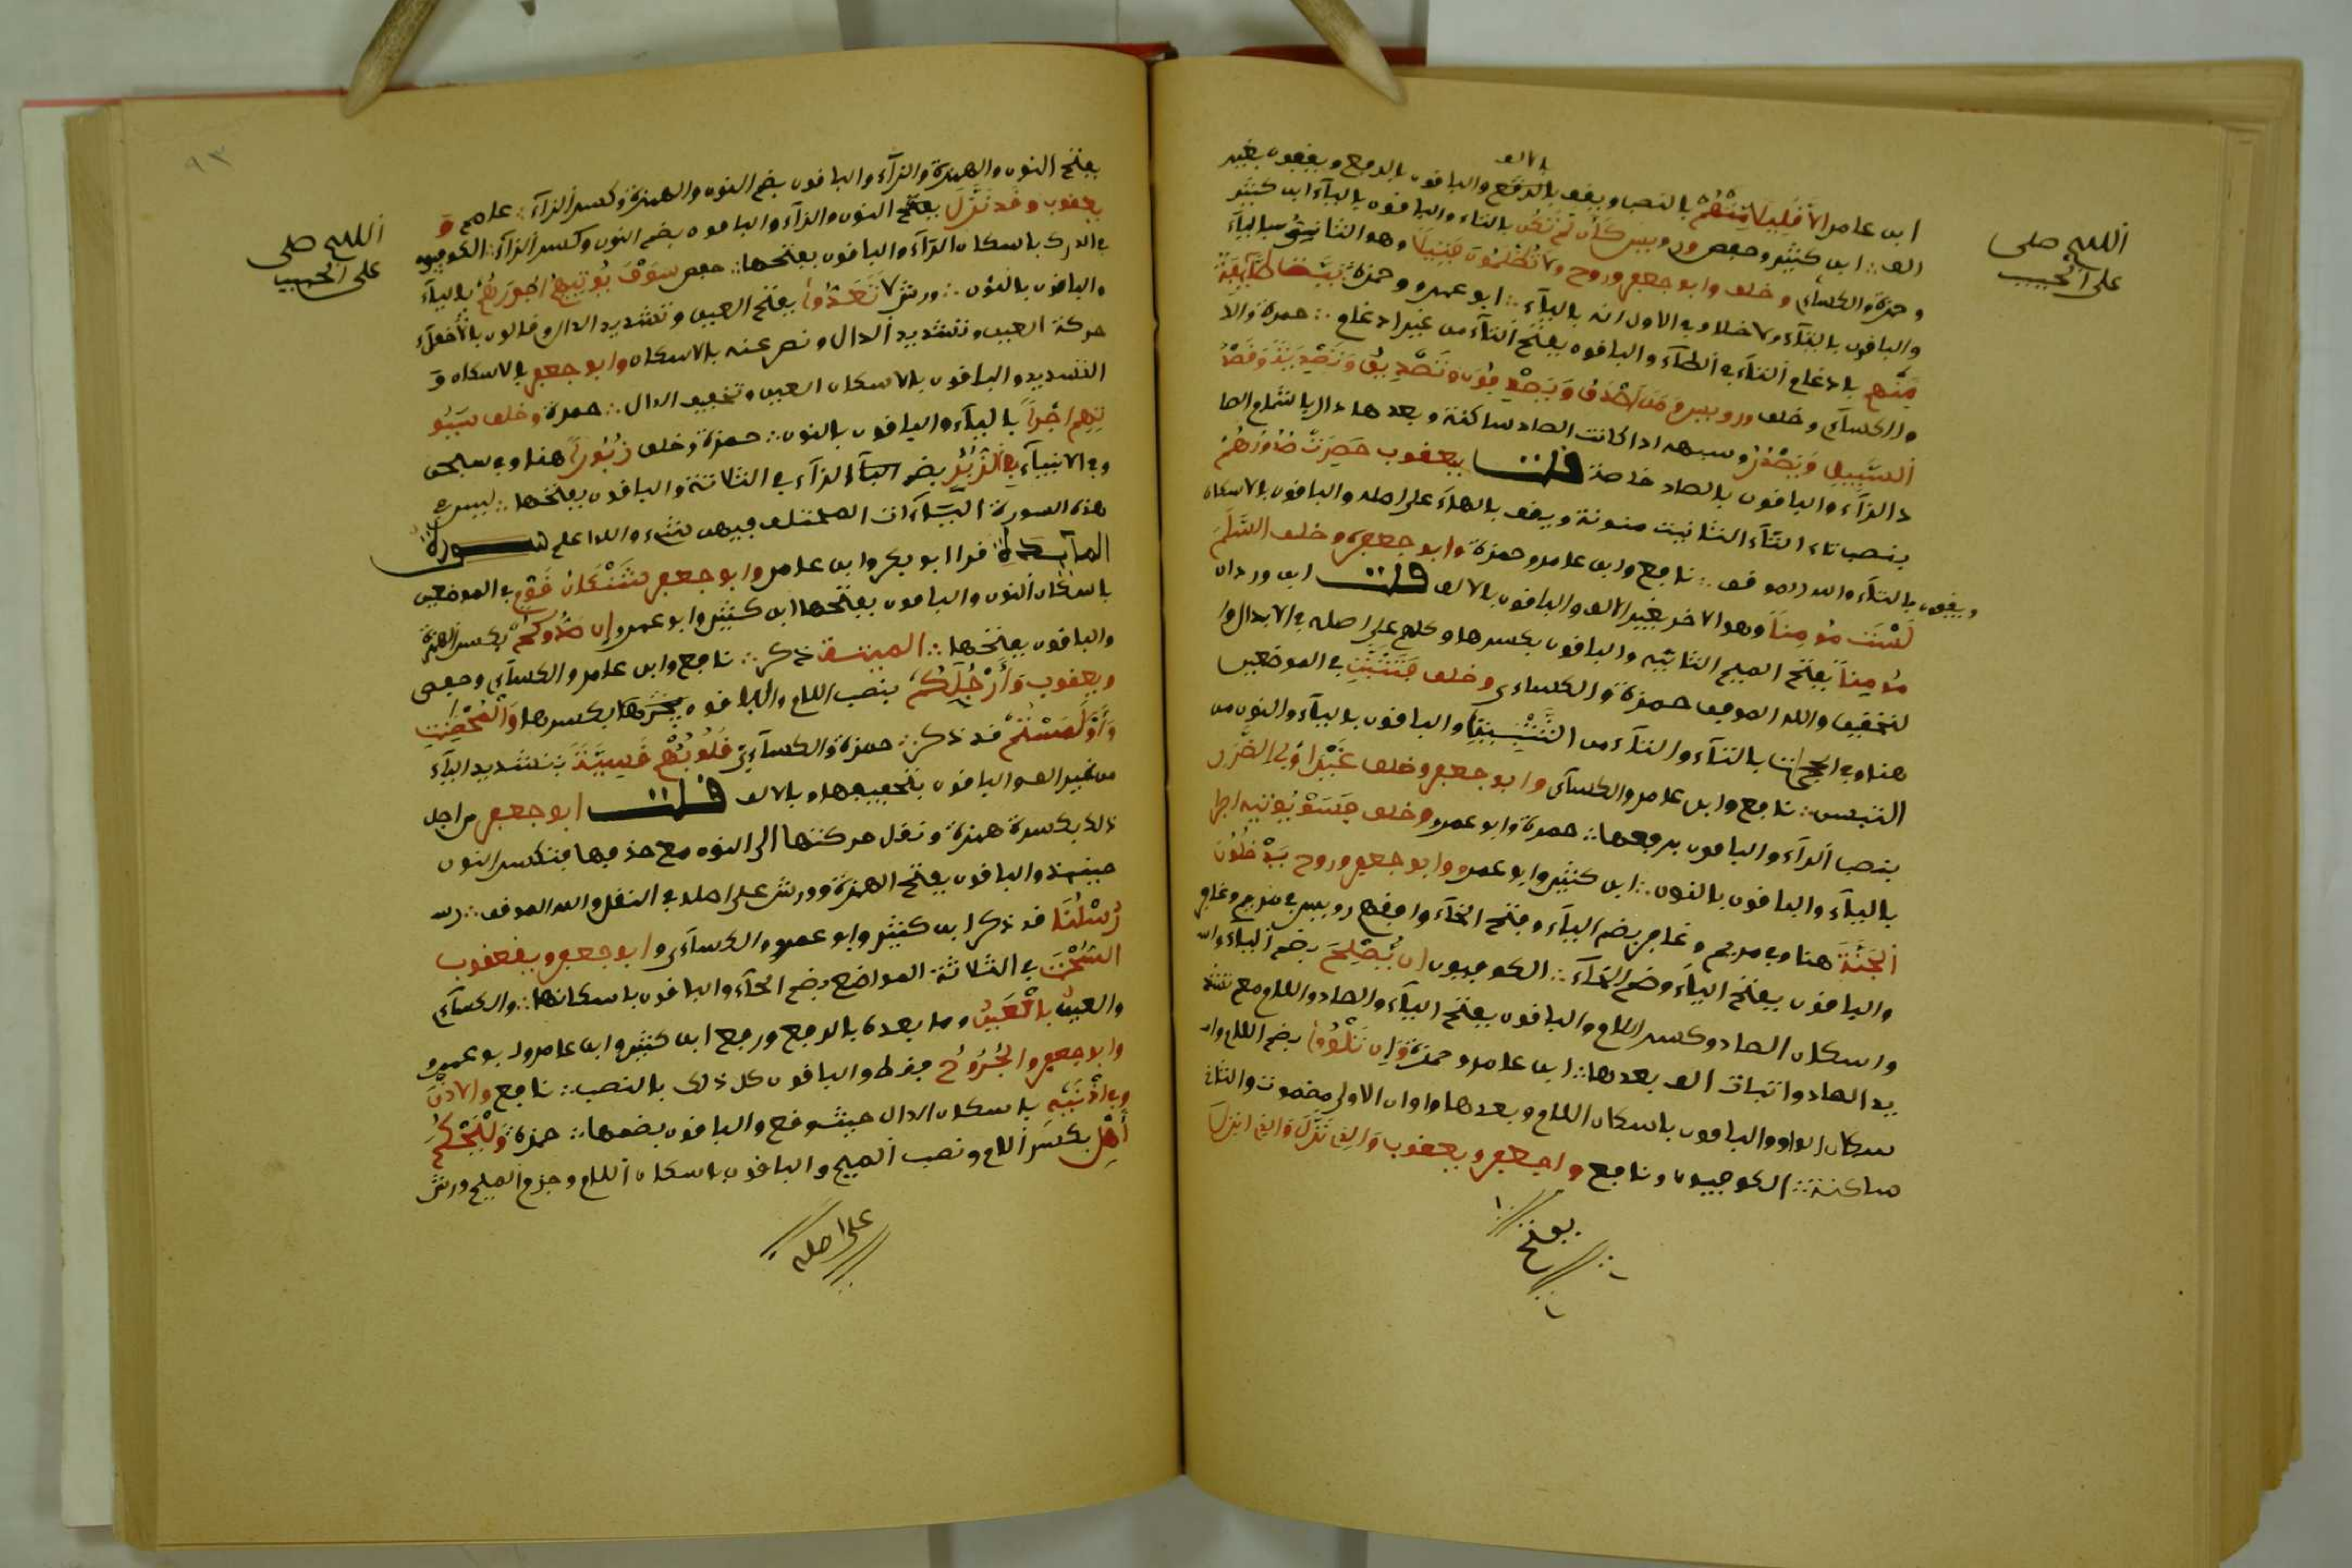 اللهم صل
على الحبيب
بالالف
ابن عامر الا قليلا منهم بالنصب ويقف بالالف والباقون بالرفع ويقفون بغير
الف ∴ ابن كثير وحفص ورويس كأن لم تكن بالتاء والباقون بالياء ابن كثير
وحمزة والكسآءي وخلف وابو جعفر وروح ولا تظلمون فتيلا وهو الثاني بالياء
والباقون بالتاء ولا خلاف في الاول انه بالياء ∴ ابو عمرو وحمزة بيت طآيفة
منهم بادغام التاء في الطاء والباقون بفتح التاء من غير ادغام ∴ حمزة وال
والكسآءي وخلف ورويس ومن اصدق ويصدفون وتصديق وتصدية وقصد
السبيل ويصدر وشبهه اذا كانت الصاد ساكنة وبعدها دال باشمام الصا
د الزآء والباقون بالصاد خالصة قلت يعقوب حصرت صدورهم
بنصب تاء التآء التانيث منونة ويقف بالهاء على اصله والباقون بالاسكان
ويقفون بالتاء والله الموفق ∴ نافع وابن عامر وحمزة وابو جعفر وخلف السلم
لست مومنا وهو الاخر بغير الالف والباقون بالالف قلت ابن وردان
مومنا بفتح الميم الثانيه والباقون بكسرها وكلهم على اصله في الابدال وا
لتحقيق والله الموفق حمزة والكساءي وخلف فتثبتوا في الموضعين
هنا وفي الحجرات بالتاء والثاء من التثبت والباقون بالياء والنون من
التبيين ∴ نافع وابن عامر والكسآءي وابو جعفر وخلف غير اولي الضرر
بنصب الرآء والباقون برفعها ∴ حمزة وابو عمرو وخلف فسوف يوتيه اجرا
بالياء والباقون بالنون ∴ ابن كثير وابو عمرو وابو جعفر وروح يدخلون
الجنة هنا وفي مريم وغافر بضم الياء وفتح الخآء وافقهم رويس في مريم وغافر
والباقون بفتح الياء وضم الخاء ∴ الكوفيون ان يصلحا بضم الياء وال
واسكان الصاد وكسر اللام والباقون بفتح الياء والصاد واللام مع تشد
يد الصاد واثبات الف بعدها ∴ ابن عامر وحمزة وان تلوا بضم اللام وا
سكان الواو والباقون باسكان اللام وبعدها واوان الاولى مضمومة والثانية
ساكنة ∴ الكوفيون ونافع وابو جعفر ويعقوب والذي نزل والذي انزل
بفتح
اللهم صل
على الحبيب
٩٣
بفتح النون والهمزة والزاء والباقون بضم النون والهمزة وكسر الزآء ∴ عاصم و
يعقوب وقد نزل بفتح النون والزآء والباقون بضم النون وكسر الزآء ∴ الكوفيون
في الدرك باسكان الرآء والباقون بفتحها ∴ حفص سوف يوتيهم اجورهم بالياء
والباقون بالنون ∴ ورش لا تعدوا بفتح العين وتشديد الدال وقالون باخفاء
حركة العين وتشديد الدال ونص عنه بالاسكان وابو جعفر بالاسكان و
التشديد والباقون بالاسكان العين وتخفيف الدال ∴ حمزة وخلف سيو
تيهم اجرا بالياء والباقون بالنون ∴ حمزة وخلف زبورا هنا وفي سبحن
وفي الانبياء في الزبر بضم الزآء في الثلاثة والباقون بفتحها ∴ ليس في
هذه السورة اليآءات المختلف فيهن شيء والله اعلم سورة
المائدة قرا ابو بكر وابن عامر وابو جعفر شنئان قوم في الموضعين
باسكان النون والباقون بفتحها ابن كثير وابو عمرو ان صدوكم بكسر الهمزة
والباقون بفتحها ∴ الميتة ذكر ∴ نافع وابن عامر والكسآءي وحفص
ويعقوب وارجلكم بنصب اللام والباقون بكسرها والمحصنت
واو لمستم قد ذكر ∴ حمزة والكسآءي قلوبهم قسية بتشديد اليآء
من غير الف والباقون بتخفيفها وبالالف قلت ابو جعفر من اجل
ذلك بكسرة همزة ونقل حركتها الى النون مع حذفها فتكسر النون
حينئذ والباقون بفتح الهمزة وورش على اصله في النقل والله الموفق ∴
رسلنا قد ذكر ابن كثير وابو عمرو والكسآءي وابو جعفر ويعقوب
السحت في الثلاثة المواضع بضم الحآء والباقون باسكانها ∴ والكسآءي
والعين بالعين وما بعده بالرفع ورفع ابن كثير وابن عامر وابو عمرو
وابو جعفر والجروح فقط والباقون كل ذلك بالنصب ∴ نافع والاذن
وفي اذنيه باسكان الذال حيث وقع والباقون بضمها ∴ حمزة وليحكم
اهل بكسر اللام ونصب الميم والباقون باسكان اللام وجزم الميم ورش
على اصله